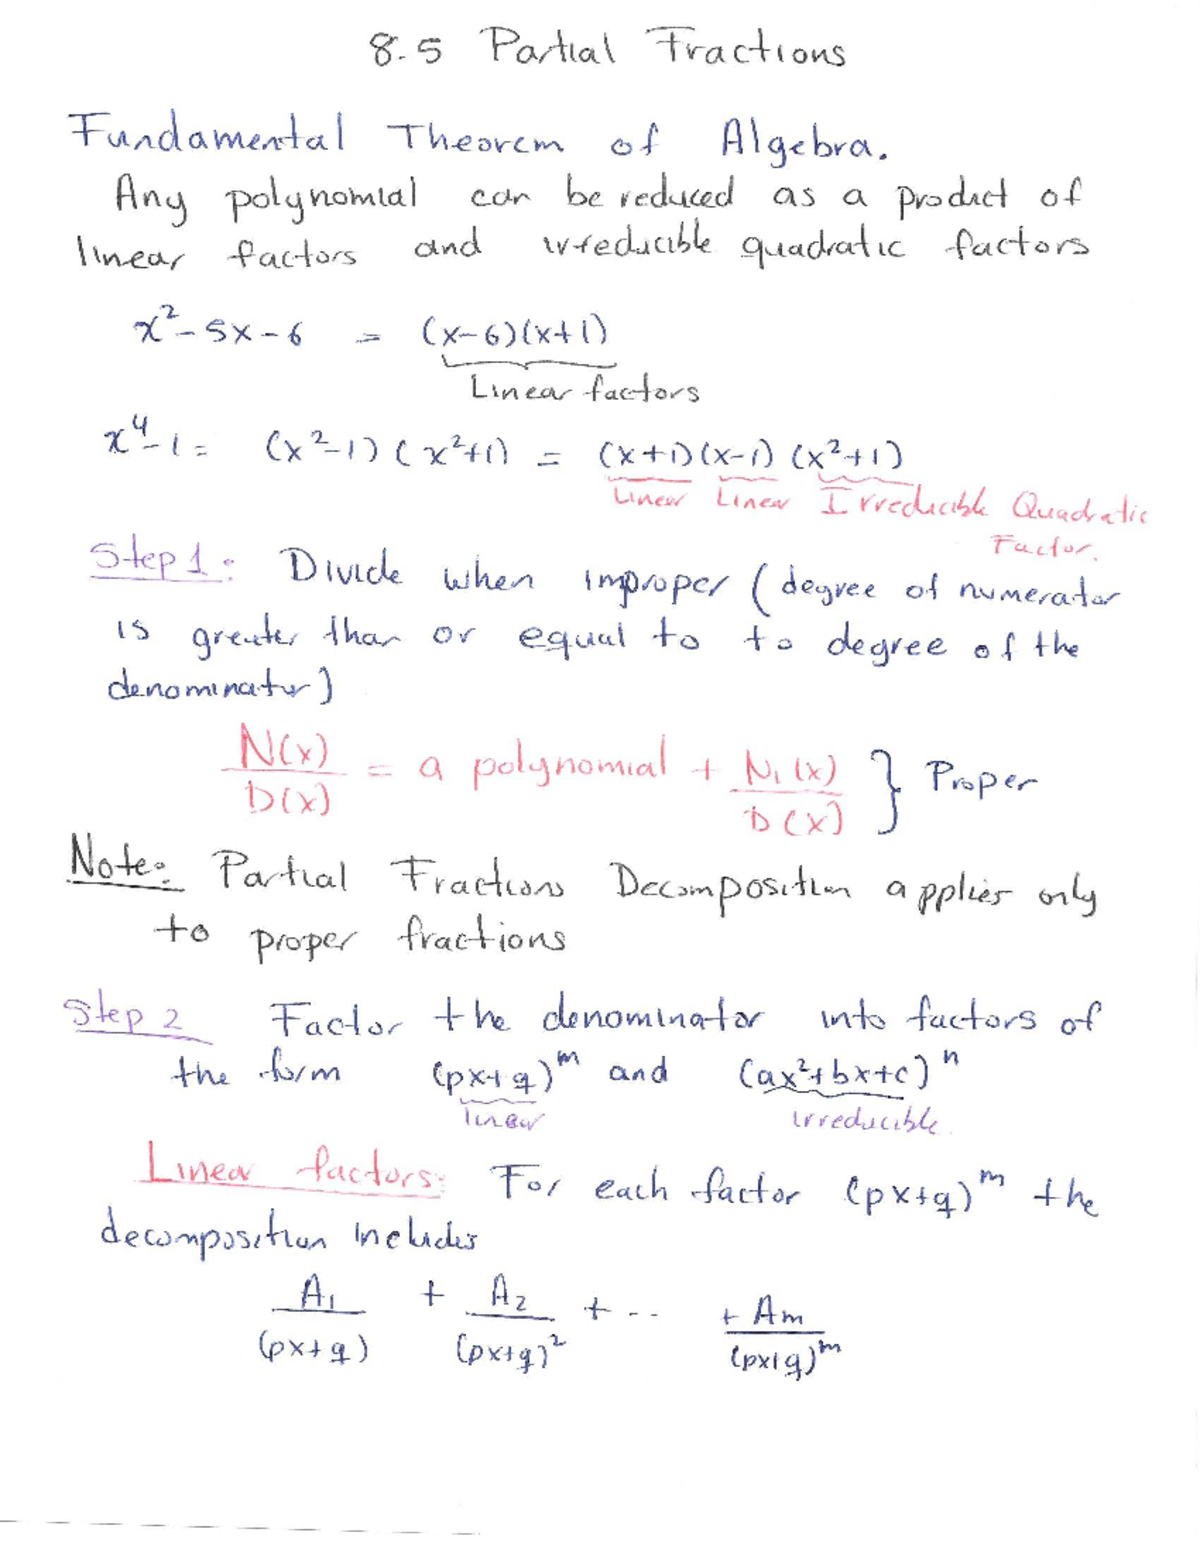 8.5 Partial Fractions
Fundamental Theorem of Algebra.
Any polynomial can be reduced as a product of
linear factors and irreducible quadratic factors
x² - 5x - 6 = (x-6)(x+1)
Linear factors
x⁴ - 1 = (x²-1)(x²+1) = (x+1)(x-1)(x²+1)
Linear Linear Irreducible Quadratic
Factor.
Step 1: Divide when improper (degree of numerator
is greater than or equal to to degree of the
denominator)
N(x)/D(x) = a polynomial + N₁(x)/D(x) } Proper
Note: Partial Fractions Decomposition applies only
to proper fractions
Step 2 Factor the denominator into factors of
the form (px+q)ᵐ and (ax²+bx+c)ⁿ
linear irreducible.
Linear factors: For each factor (px+q)ᵐ the
decomposition includes
A₁/(px+q) + A₂/(px+q)² + -- + Am/(px+q)ᵐ